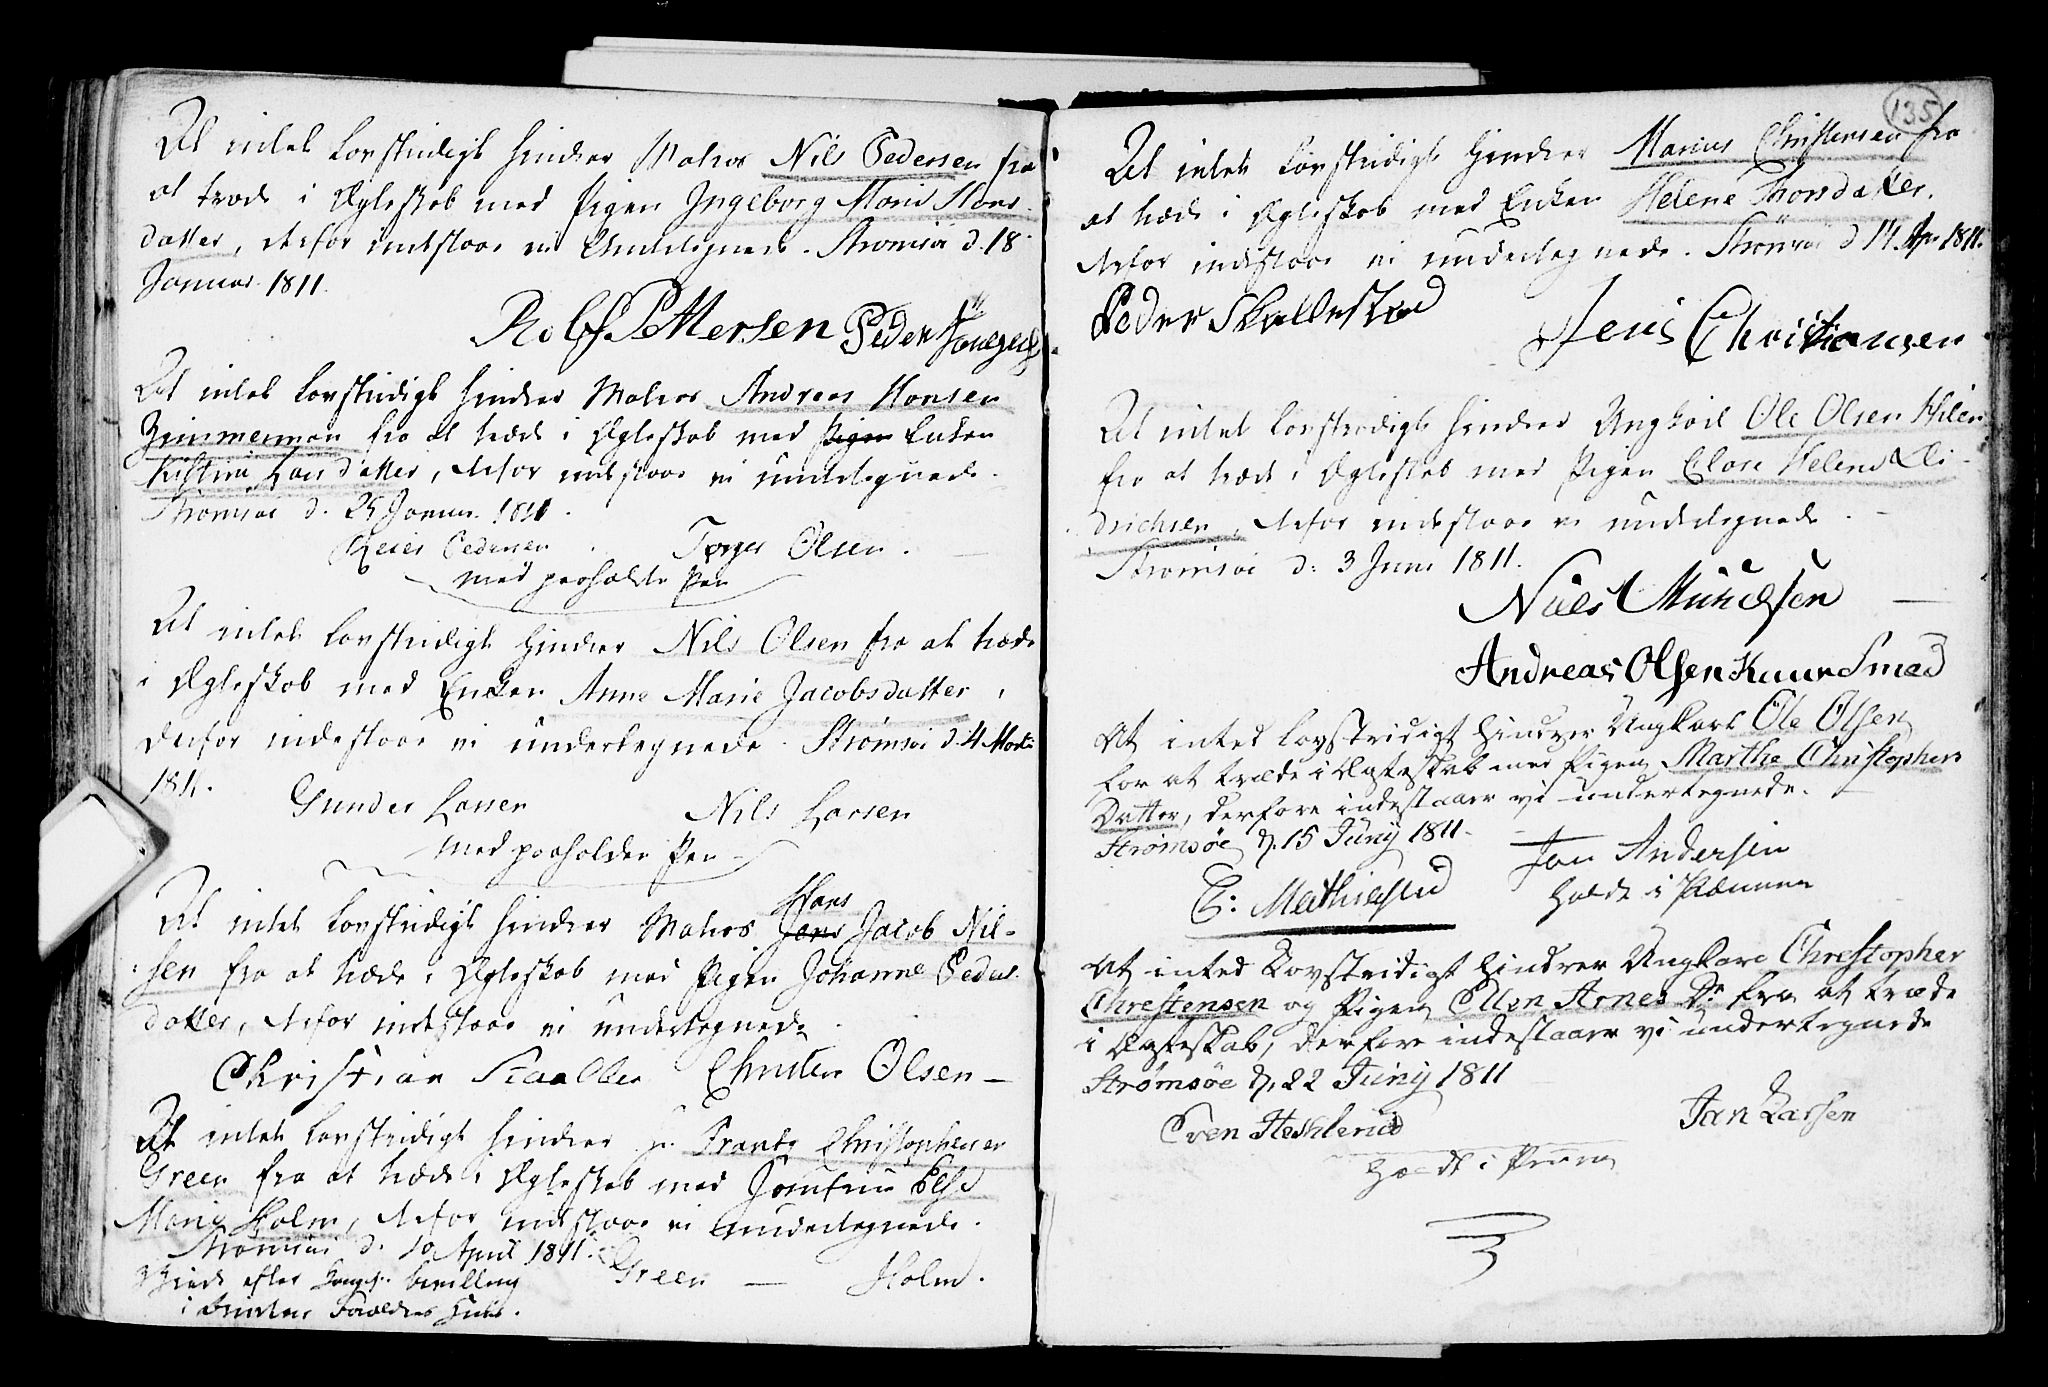 At intet Lovstridigt hindrer Matros Nils Pedersen fra
at træde i Ægteskab med Pigen Ingeborg Marie Hans
datter, derfor indestaae vi Undertegnede. Strømsøe d. 18
Januar. 1811.
Rolf Pettersen Peder
At intet Lovstridigt hindrer Matros Andreas Hansen
Zimmerman fra at træde i Ægteskab med Pigen Enken
Kistine Larsdatter, derfor indestaae vi undertegnede.
Strømsøe d. 25 Januar. 1811.
Reier Pedersen Torger Olsen.
med paaholden Pen
At intet Lovstridigt hindrer Nils Olsen fra at træde
i Ægteskab med Enken Anne Marie Jacobsdatter,
derfor indestaae vi undertegnede. Strømsøe d. 4 Marti
1811.
Gunder Larsen Nils Larsen
med paaholden Pen
Hans
At intet Lovstridigt hindrer Matros Jens Jacob Nil-
sen fra at træde i Ægteskab med Pigen Johanne Peders
datter, derfor indestaae vi undertegnede
Christian Christen Olsen
At intet Lovstridigt hindrer Hr. Frantz Christophersen
Green fra at træde i Ægteskab med Jomfrue Else
Marie Holm, derfor indestaae vi undertegnede.
Strømsøe d. 10 April 1811.
Green Holm.
viede efter Kongel. bevilling
i Forældres Huus.
135
At intet Lovstridigt hindrer Marius Christensen fra
at træde i Ægteskab med Enken Helene Thorsdatter.
derfor indestaae vi undertegnede. Strømsøe d 14 Apr 1811.
Peder Skallestad Jens Christiansen
At intet Lovstridigt hindrer Ungkarl Ole Olsen Hilen
fra at træde i Ægteskab med Pigen Clare Helene Di-
drichsen, derfor indestaae vi undertegnede.
Strømsøe d: 3 Juni 1811.
Niels Knudsen
Andreas Olsen Kaarsmed
At inted Lovstridigt hindrer Ungkarl Ole Olsen
for at træde i Ægteskab med Pigen Marthe Christophers
Datter, derfore indestaaer vi undertegnede.
Strømsøe d. 15 Juny 1811.
C: Mathiesen Jan Andersen
holdt i Pænnen
At inted Lovstridigt hindrer Ungkarl Chrestopher
Chrestensen og Pigen Ellen Arnes Dr. fra at træde
i Ægteskab, derfore indestaaer vi undertegnede
Strømsøe d. 22 Juny 1811
Even Jan Larsen
holdt i Pennen